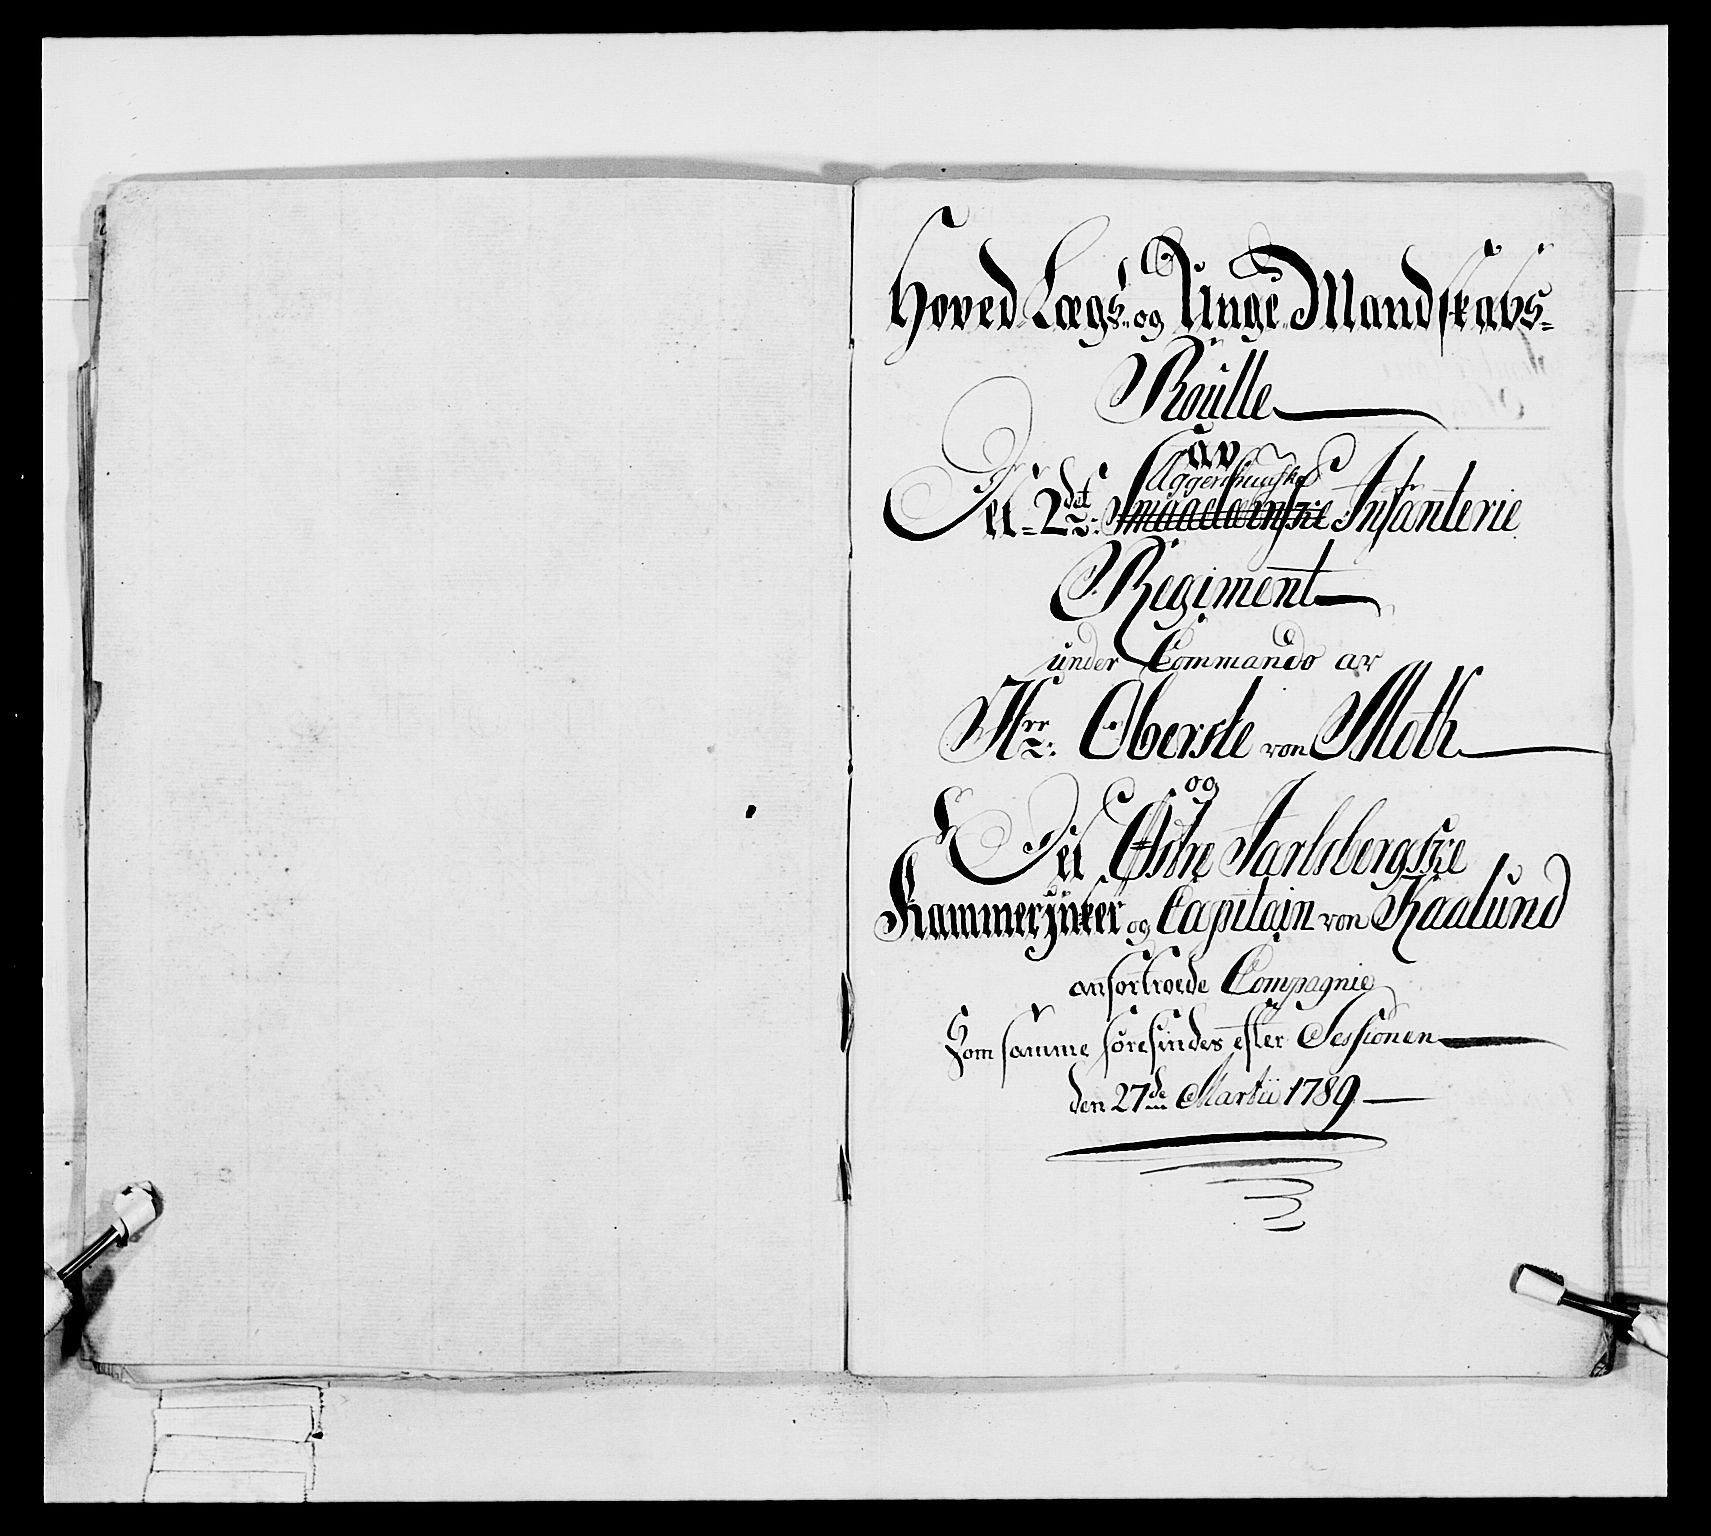 Hoved Lægs og Unge Mandskabs-
Roulle
av
Aggershuuske
Det 2det Smaaelenske Infanterie
Regiment
under Commando av
Hrr Oberste von Moth
og
Det Østre Jarlsbergske
Kammerjunker og Capitain von Kaalund
anfortroede Compagnie
Som samme forefindes efter Sessionen
den 27de Martii 1789